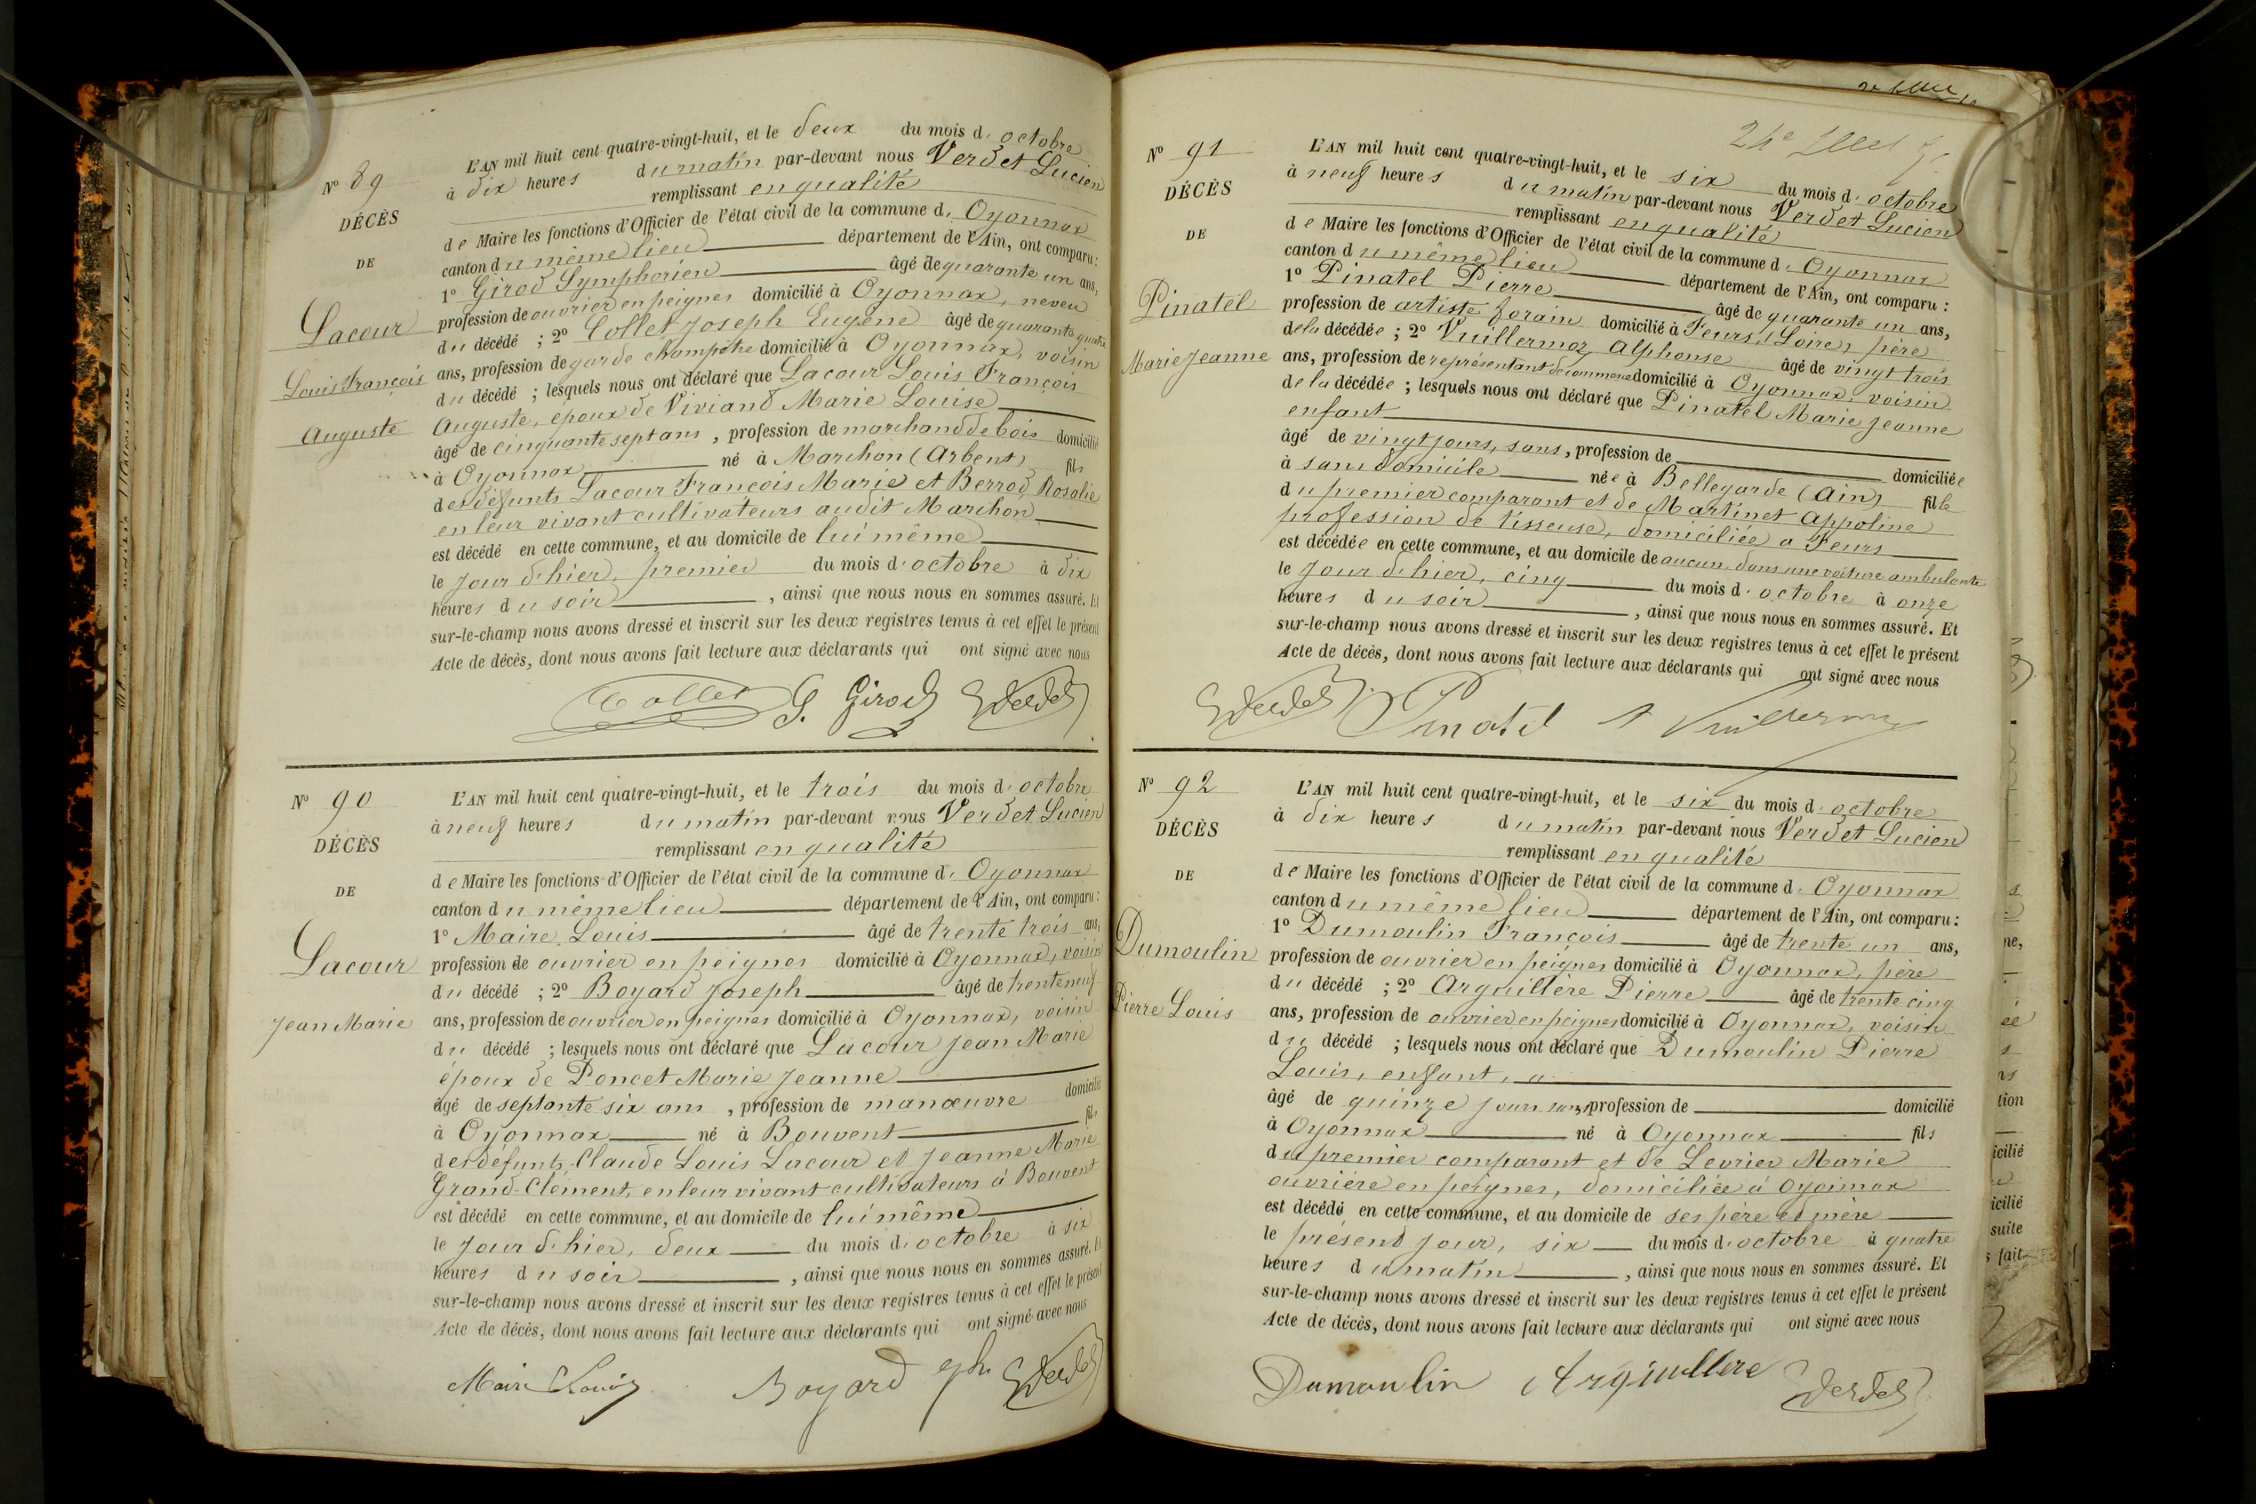 N° 89
DÉCÈS
DE
Lacour
Louis François
Auguste
L'AN mil huit cent quatre-vingt-huit, et le deux du mois d' octobre
à dix heures du matin par-devant nous Verdet Lucien
remplissant en qualité
de Maire les fonctions d'Officier de l'état civil de la commune d' Oyonnax
canton du même lieu département de l'Ain, ont comparu :
1° Girod Symphorien âgé de quarante un ans,
profession de ouvrier en peignes domicilié à Oyonnax, neveu
du décédé ; 2° Collet Joseph Eugène âgé de quarante quatre
ans, profession de garde champêtre domicilié à Oyonnax, voisin
du décédé ; lesquels nous ont déclaré que Lacour Louis François
Auguste, époux de Viviand Marie Louise
âgé de cinquante sept ans, profession de marchand de bois domicilié
à Oyonnax né à Marchon (Arbent) fils
des défunts Lacour François Marie et Berrod Rosalie
en leur vivant cultivateurs audit Marchon
est décédé en cette commune, et au domicile de lui même
le jour d'hier, premier du mois d' octobre à dix
heures du soir, ainsi que nous nous en sommes assuré. Et
sur-le-champ nous avons dressé et inscrit sur les deux registres tenus à cet effet le présent
Acte de décès, dont nous avons fait lecture aux déclarants qui ont signé avec nous
Collet S. Girod Verdet
N° 90
DÉCÈS
DE
Lacour
Jean Marie
L'AN mil huit cent quatre-vingt-huit, et le trois du mois d' octobre
à neuf heures du matin par-devant nous Verdet Lucien
remplissant en qualité
de Maire les fonctions d'Officier de l'état civil de la commune d' Oyonnax
canton du même lieu département de l'Ain, ont comparu :
1° Maire Louis âgé de trente trois ans,
profession de ouvrier en peignes domicilié à Oyonnax, voisin
du décédé ; 2° Boyard Joseph âgé de trente neuf
ans, profession de ouvrier en peignes domicilié à Oyonnax, voisin
du décédé ; lesquels nous ont déclaré que Lacour Jean Marie
époux de Poncet Marie Jeanne
âgé de septante six ans, profession de manœuvre domicilié
à Oyonnax né à Bouvent fils
des défunts Claude Louis Lacour et Jeanne Marie
Grand-Clément, en leur vivant cultivateurs à Bouvent
est décédé en cette commune, et au domicile de lui même
le jour d'hier, deux du mois d' octobre à six
heures du soir, ainsi que nous nous en sommes assuré. Et
sur-le-champ nous avons dressé et inscrit sur les deux registres tenus à cet effet le présent
Acte de décès, dont nous avons fait lecture aux déclarants qui ont signé avec nous
Maire Louis Boyard Jph Verdet
N° 91
DÉCÈS
DE
Pinatel
Marie Jeanne
L'AN mil huit cent quatre-vingt-huit, et le six du mois d' octobre
à neuf heures du matin par-devant nous Verdet Lucien
remplissant en qualité
de Maire les fonctions d'Officier de l'état civil de la commune d' Oyonnax
canton du même lieu département de l'Ain, ont comparu :
1° Pinatel Pierre âgé de quarante un ans,
profession de artiste forain domicilié à Feurs, (Loire), père
de la décédée ; 2° Vuillermoz Alphonse âgé de vingt trois
ans, profession de représentant de commerce domicilié à Oyonnax, voisin
de la décédée ; lesquels nous ont déclaré que Pinatel Marie Jeanne
enfant
âgé de vingt jours, sans, profession de domiciliée
à sans domicile née à Bellegarde (Ain) fille
du premier comparant et de Martinet Appoline
profession de tisseuse, domiciliée à Feurs
est décédée en cette commune, et au domicile de aucun, dans une voiture ambulante
le jour d'hier, cinq du mois d' octobre à onze
heures du soir, ainsi que nous nous en sommes assuré. Et
sur-le-champ nous avons dressé et inscrit sur les deux registres tenus à cet effet le présent
Acte de décès, dont nous avons fait lecture aux déclarants qui ont signé avec nous
Verdet Pinatel A Vuillermoz
N° 92
DÉCÈS
DE
Dumoulin
Pierre Louis
L'AN mil huit cent quatre-vingt-huit, et le six du mois d' octobre
à dix heures du matin par-devant nous Verdet Lucien
remplissant en qualité
de Maire les fonctions d'Officier de l'état civil de la commune d' Oyonnax
canton du même lieu département de l'Ain, ont comparu :
1° Dumoulin François âgé de trente un ans,
profession de ouvrier en peignes domicilié à Oyonnax, père
du décédé ; 2° Arguillère Pierre âgé de trente cinq
ans, profession de ouvrier en peignes domicilié à Oyonnax, voisin
du décédé ; lesquels nous ont déclaré que Dumoulin Pierre
Louis, enfant, a
âgé de quinze jours sans profession de domicilié
à Oyonnax né à Oyonnax fils
du premier comparant et de Levrier Marie
ouvrière en peignes, domiciliée à Oyonnax
est décédé en cette commune, et au domicile de ses père et mère
le présent jour, six du mois d' octobre à quatre
heures du matin, ainsi que nous nous en sommes assuré. Et
sur-le-champ nous avons dressé et inscrit sur les deux registres tenus à cet effet le présent
Acte de décès, dont nous avons fait lecture aux déclarants qui ont signé avec nous
Dumoulin Arguillere Verdet